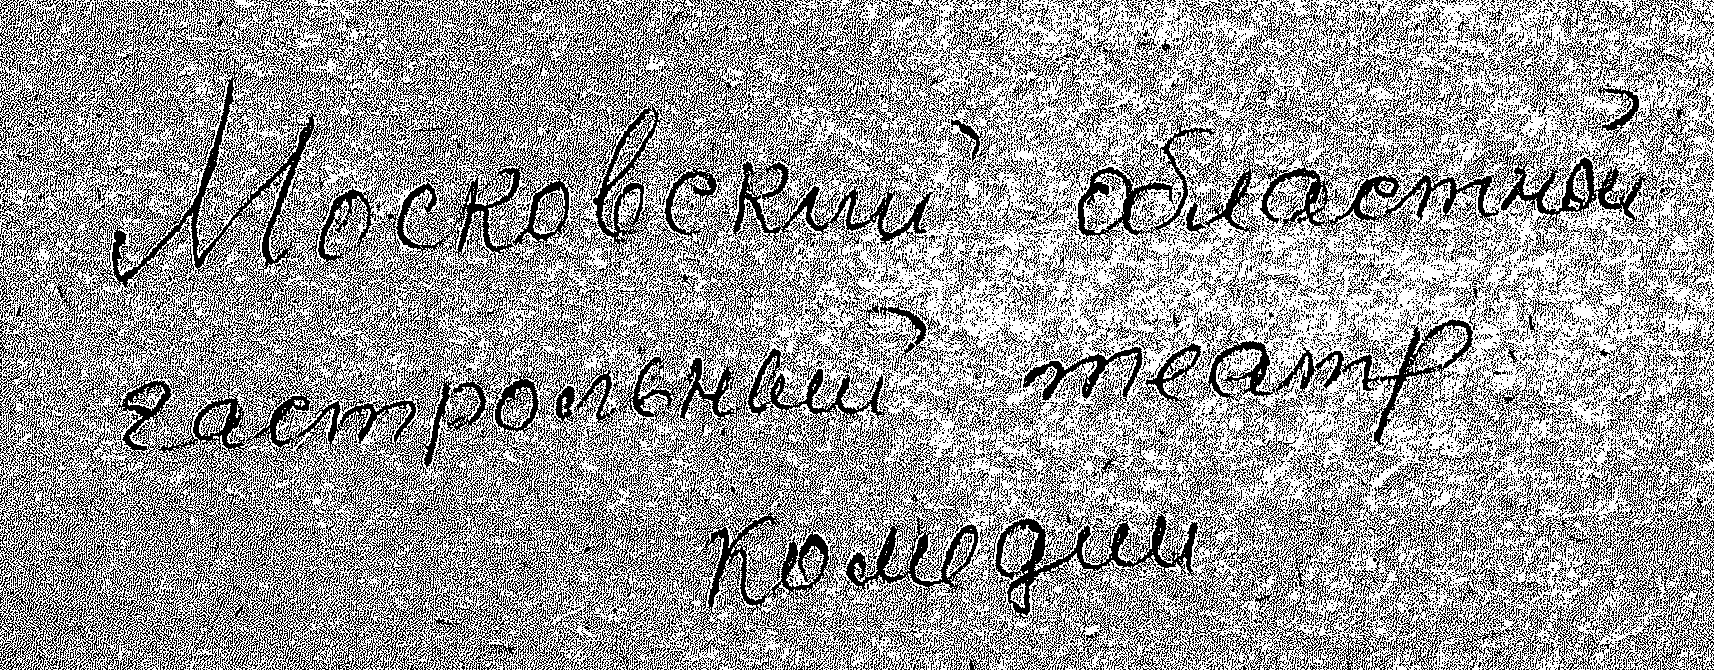 Московский областной
гастрольный театр
комедии